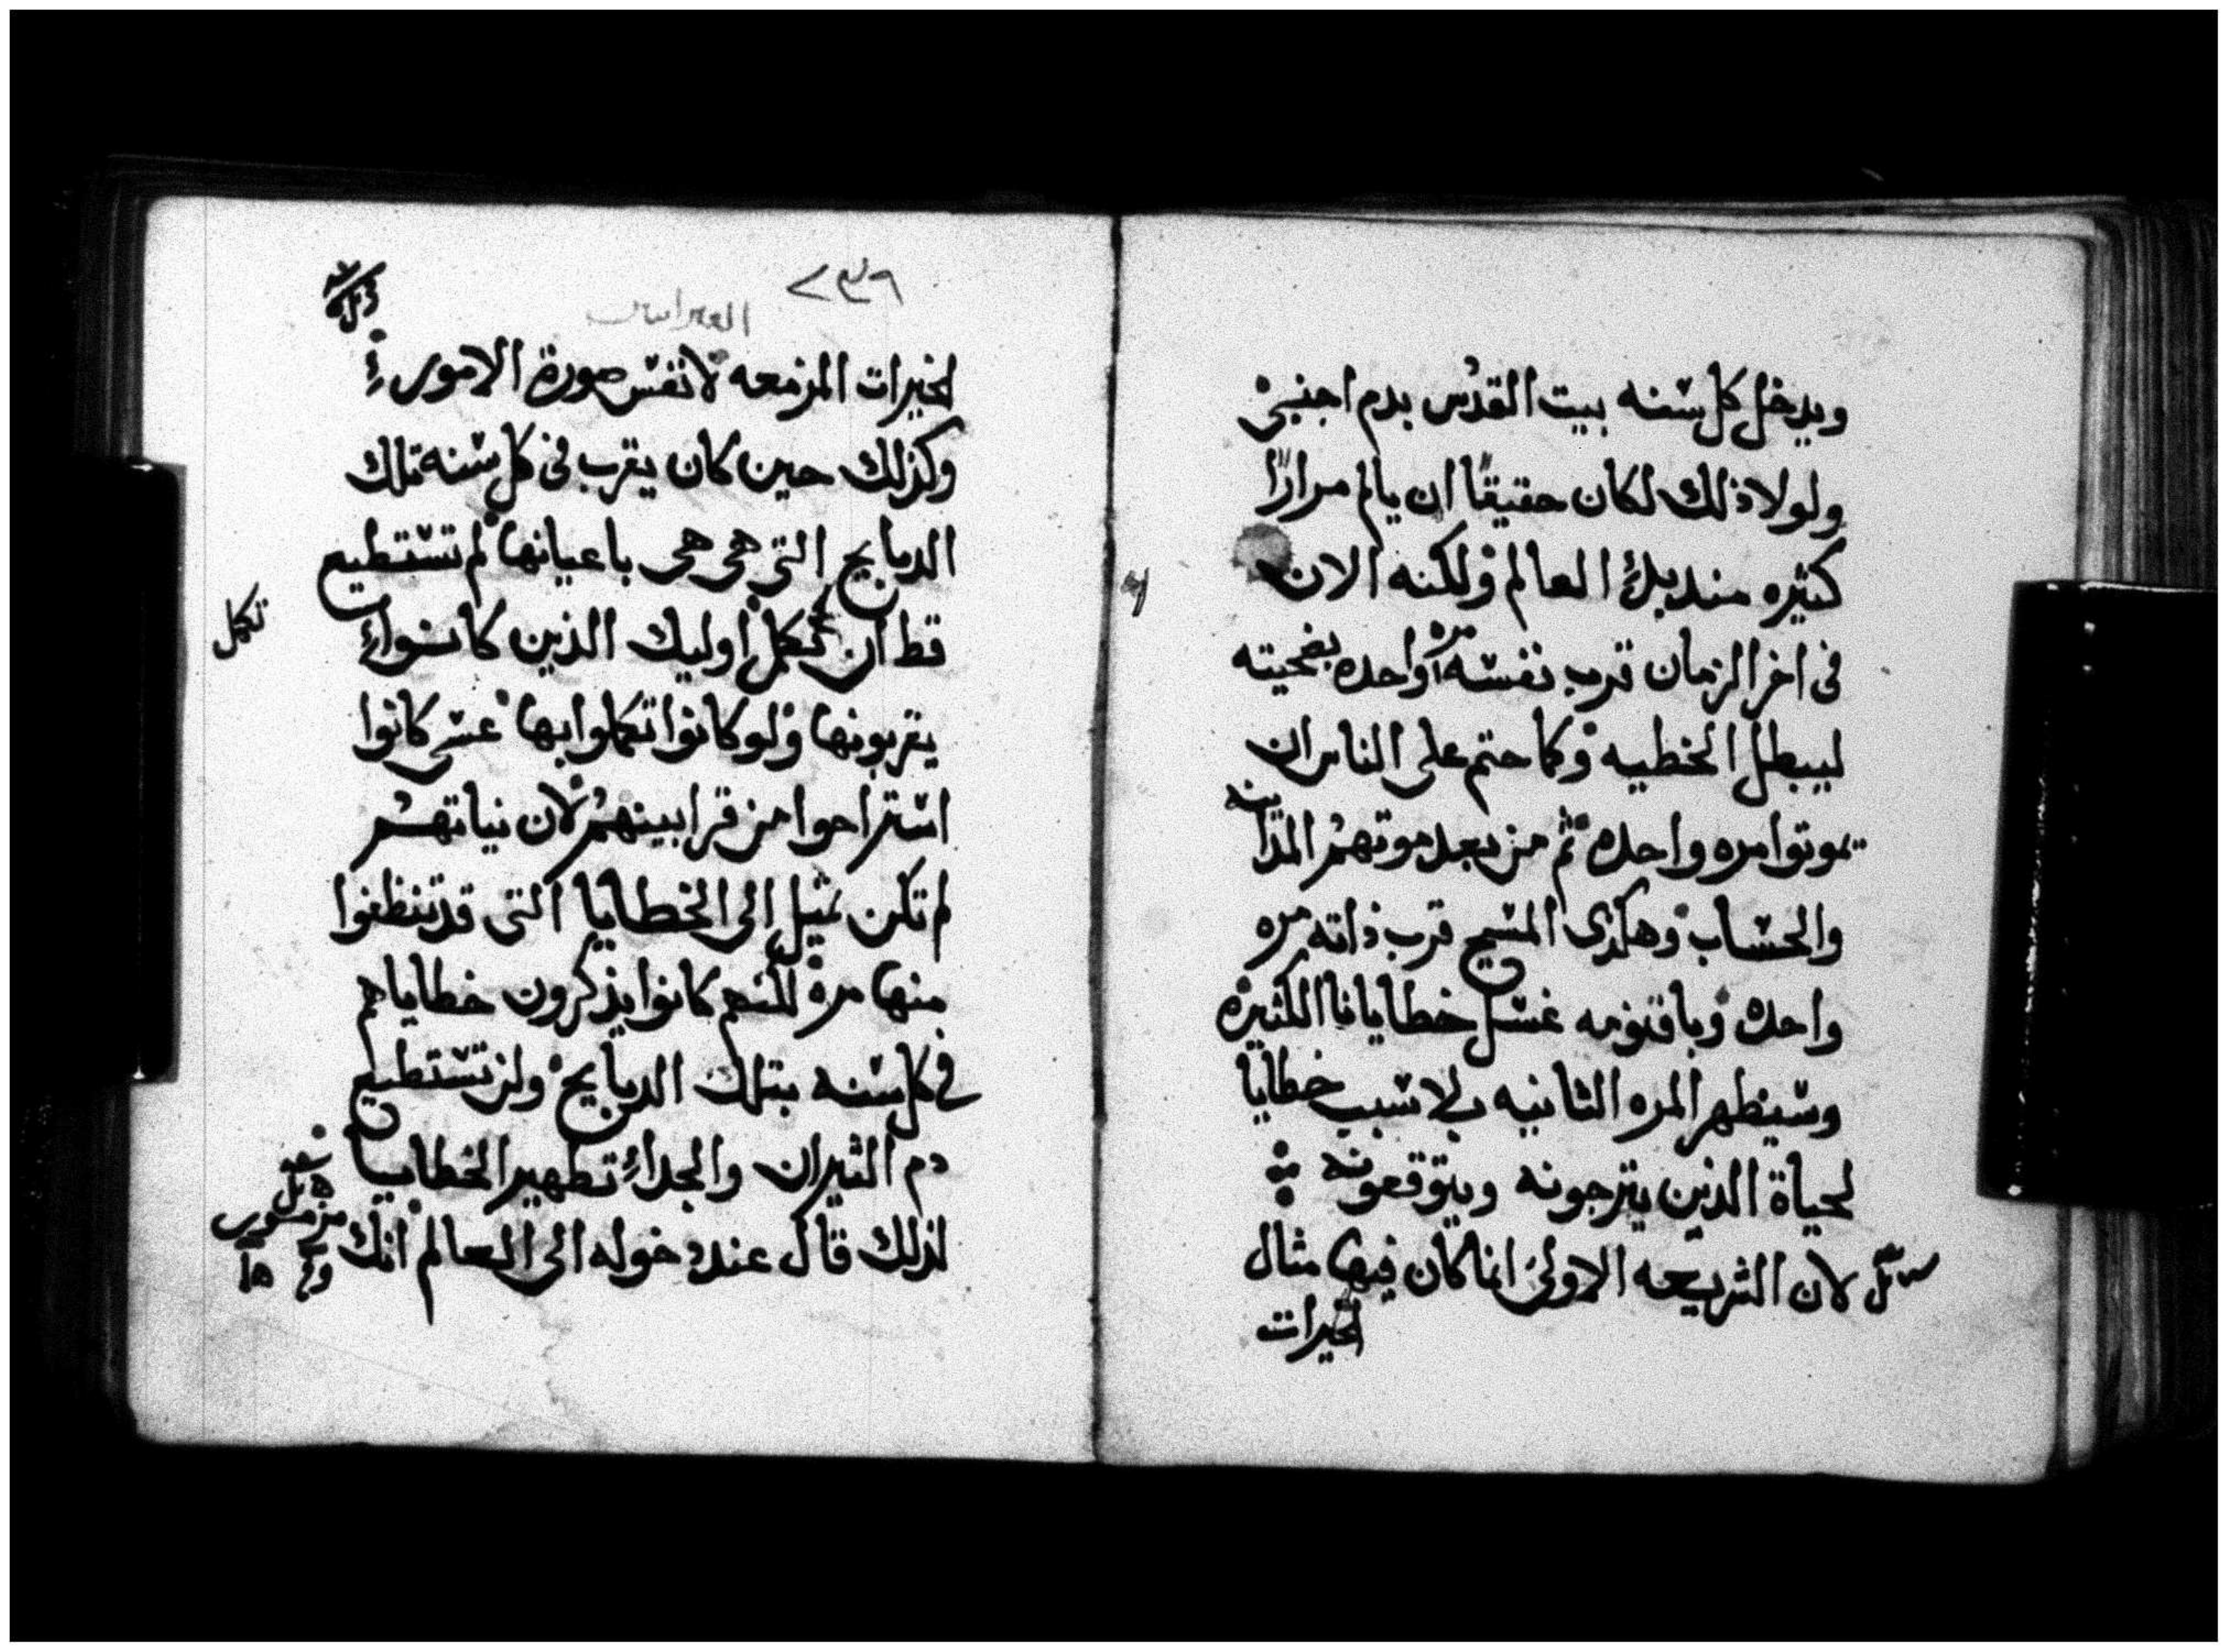 ويدخل كل سنه بيت القدس بدم اجنبي
ولولا ذلك لكان حقيقًا ان يالم مرارًا
كثيره منذ بدء العالم ولكنه الان
في اخر الزمان قرب نفسه مره واحده بضحيته
ليبطل الخطيه وكما حتم على الناس ان
يموتوا مره واحده ثم من بعد موتهم المداينه
والحساب وهكذى المسيح قرب ذاته مره
واحده وباقنومه غسل خطايانا الكثيره
وسيظهر المره الثانيه بلا سبب خطايا
لحياة الذين يترجونه ويتوقعونه
لان الشريعه الاولى انما كان فيها مثال
لخيرات
٢٣٩
العبرانيين
لخيرات المزمعه لا نفس صورة الامور
وكذلك حين كان يقرب في كل سنه تلك
الدبايح التي هي هي باعيانها لم تستطيع
تكمل
قط ان تكمل اوليك الذين كانوا
يقربونها ولو كانوا تكملوا بها عسى كانوا
استراحوا من قرابينهم لان نياتهم
لم تكن تميل الى الخطايا التي قد تنظفوا
منها مره لكنهم كانوا يذكرون خطاياهم
في كل سنه بتلك الدبايح ولن تستطيع
دم الثيران والجداء تطهير الخطايا
لذلك قال عند دخوله الى العالم انك
مزمور